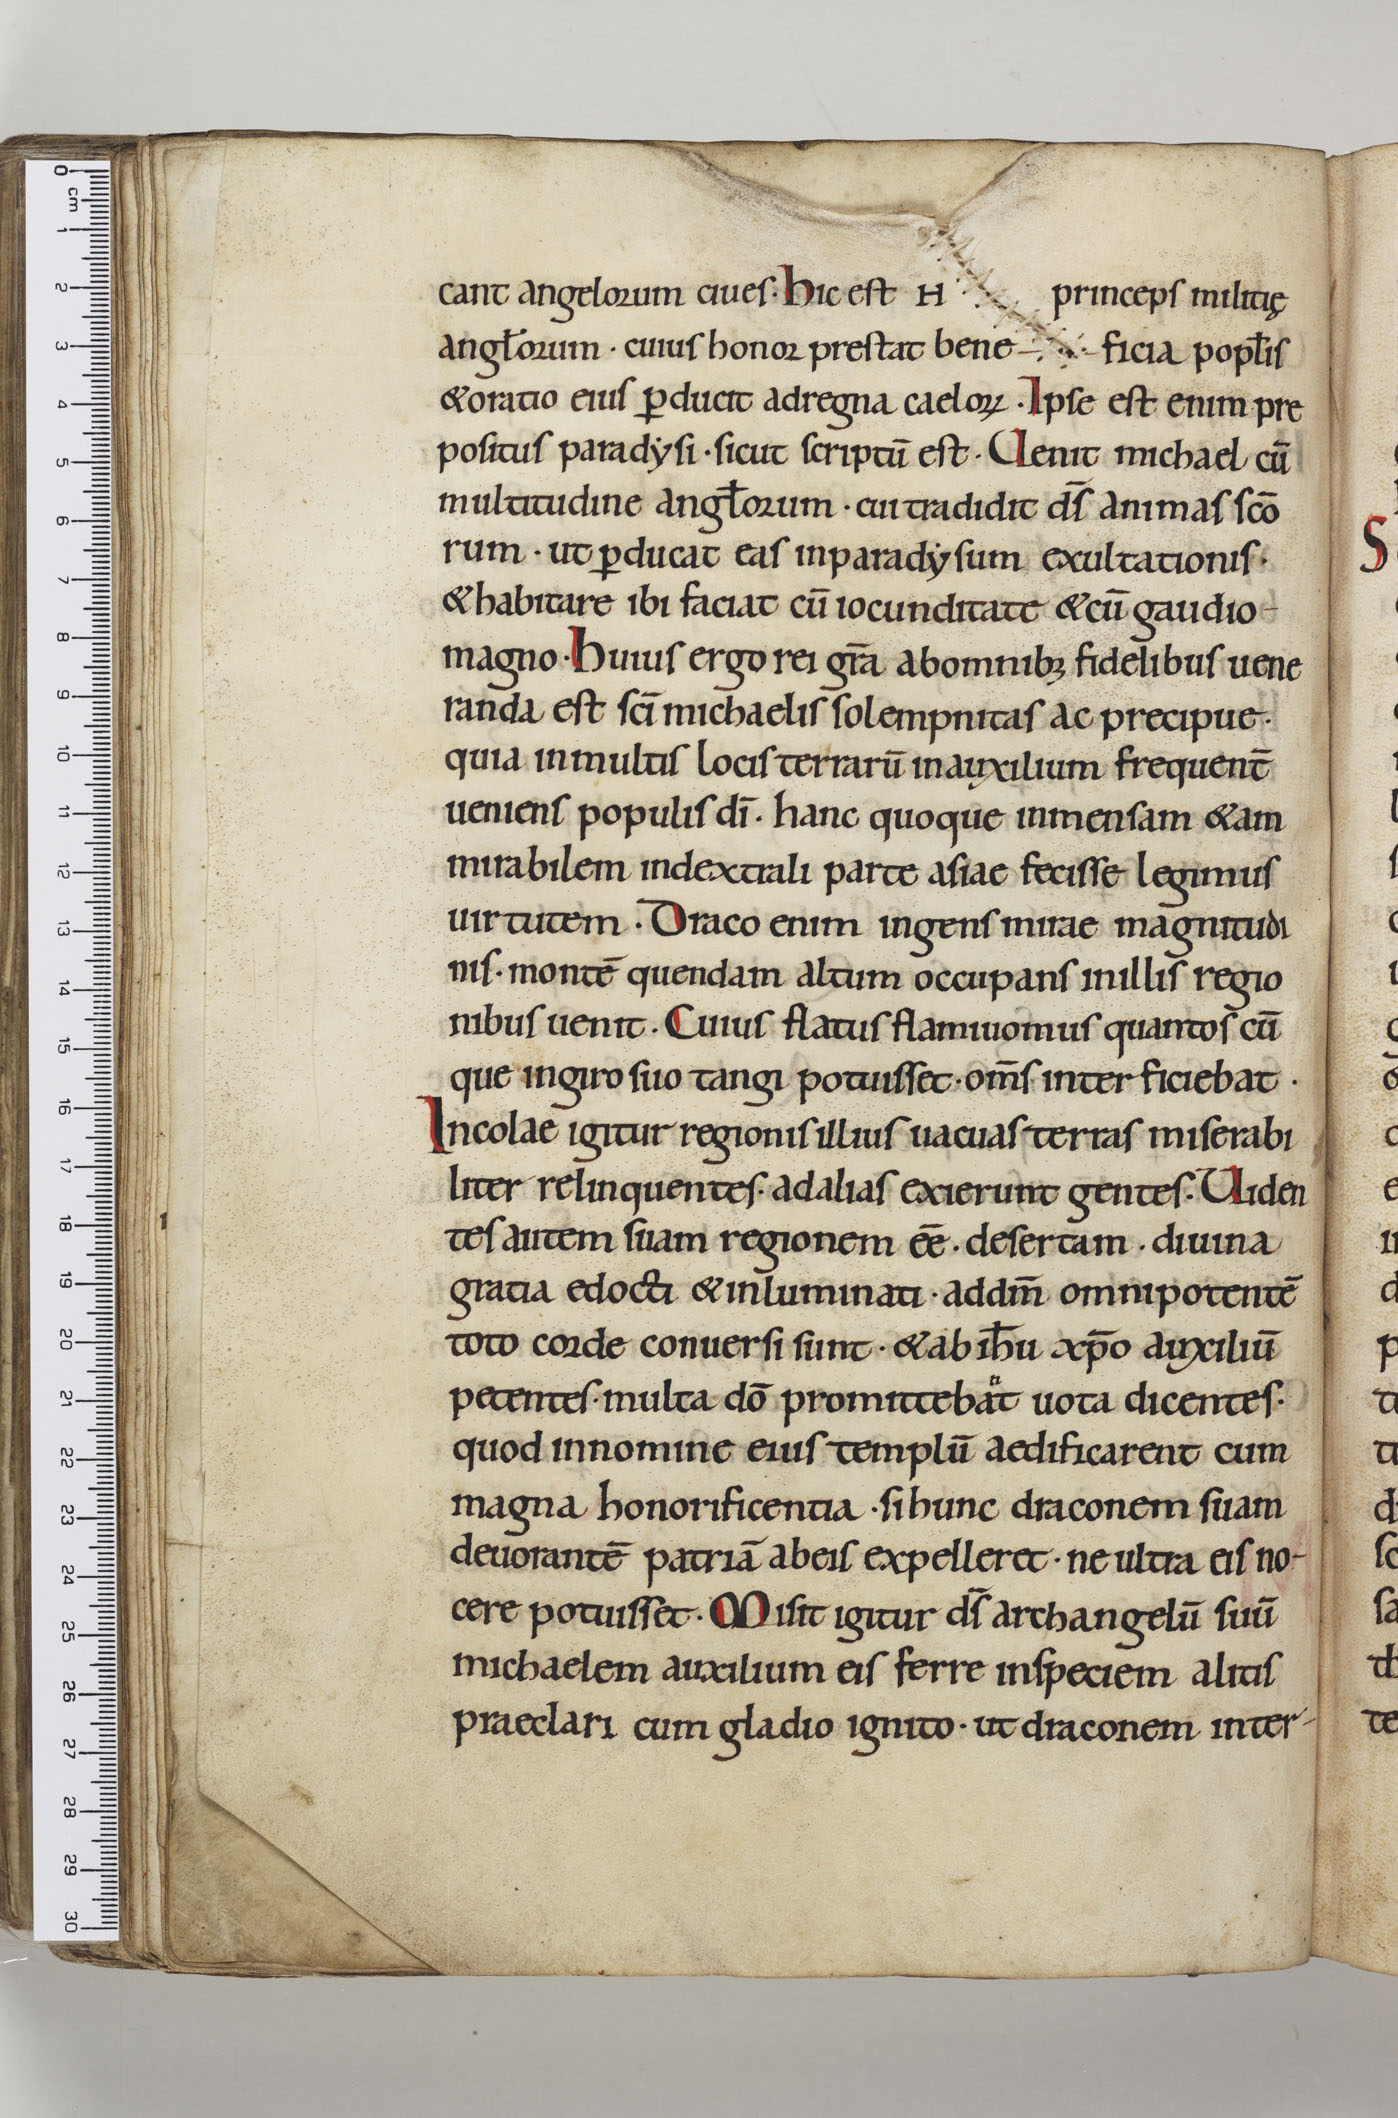 cant angelorum ciues · Hic est H princeps militię
angl̄orum · cuius honor prestat bene- - ficia popl̄is
& oratio eius ꝑducit ad regna caeloꝝ · Ipse est enim pre
positus paradẏsi · sicut scriptū est · Uenit michael cū
multitudine angl̄orum · cui tradidit d̄s animas scō
rum · ut ꝑducat eas in paradẏsum exultationis ·
& habitare ibi faciat cū iocunditate & cū gaudio -
magno · Huius ergo rei gr̄a ab omnibꝫ fidelibus uene
randa est sc̄i michaelis solempnitas ac precipue ·
quia in multis locis terrarū in auxilium frequent̄
ueniens populis dī · hanc quoque inmensam & am
mirabilem in dextrali parte asiae fecisse legimus
uirtutem · Draco enim ingens mirae magnitudi
nis · montē quendam altum occupans in illis regio
nibus uenit · Cuius flatus flamiuomus quantos cū
que in giro suo tangi potuisset · om̄s interficiebat ·
Incolae igitur regionis illius uacuas terras miserabi
liter relinquentes · ad alias exierunt gentes · Uiden
tes autem suam regionem eē · desertam · diuina
gratia edocti & inluminati · ad dm̄ omnipotentē
toto corde conuersi sunt · & ab ih̄u xp̄o auxiliū
petentes · multa dō promittebãt uota dicentes ·
quod in nomine eius templū aedificarent cum
magna honorificentia · si hunc draconem suam
deuorantē patriā ab eis expelleret · ne ultra eis no-
cere potuisset · Misit igitur d̄s archangelū suū
michaelem auxilium eis ferre in speciem alitis
praeclari cum gladio ignito · ut draconem inter-